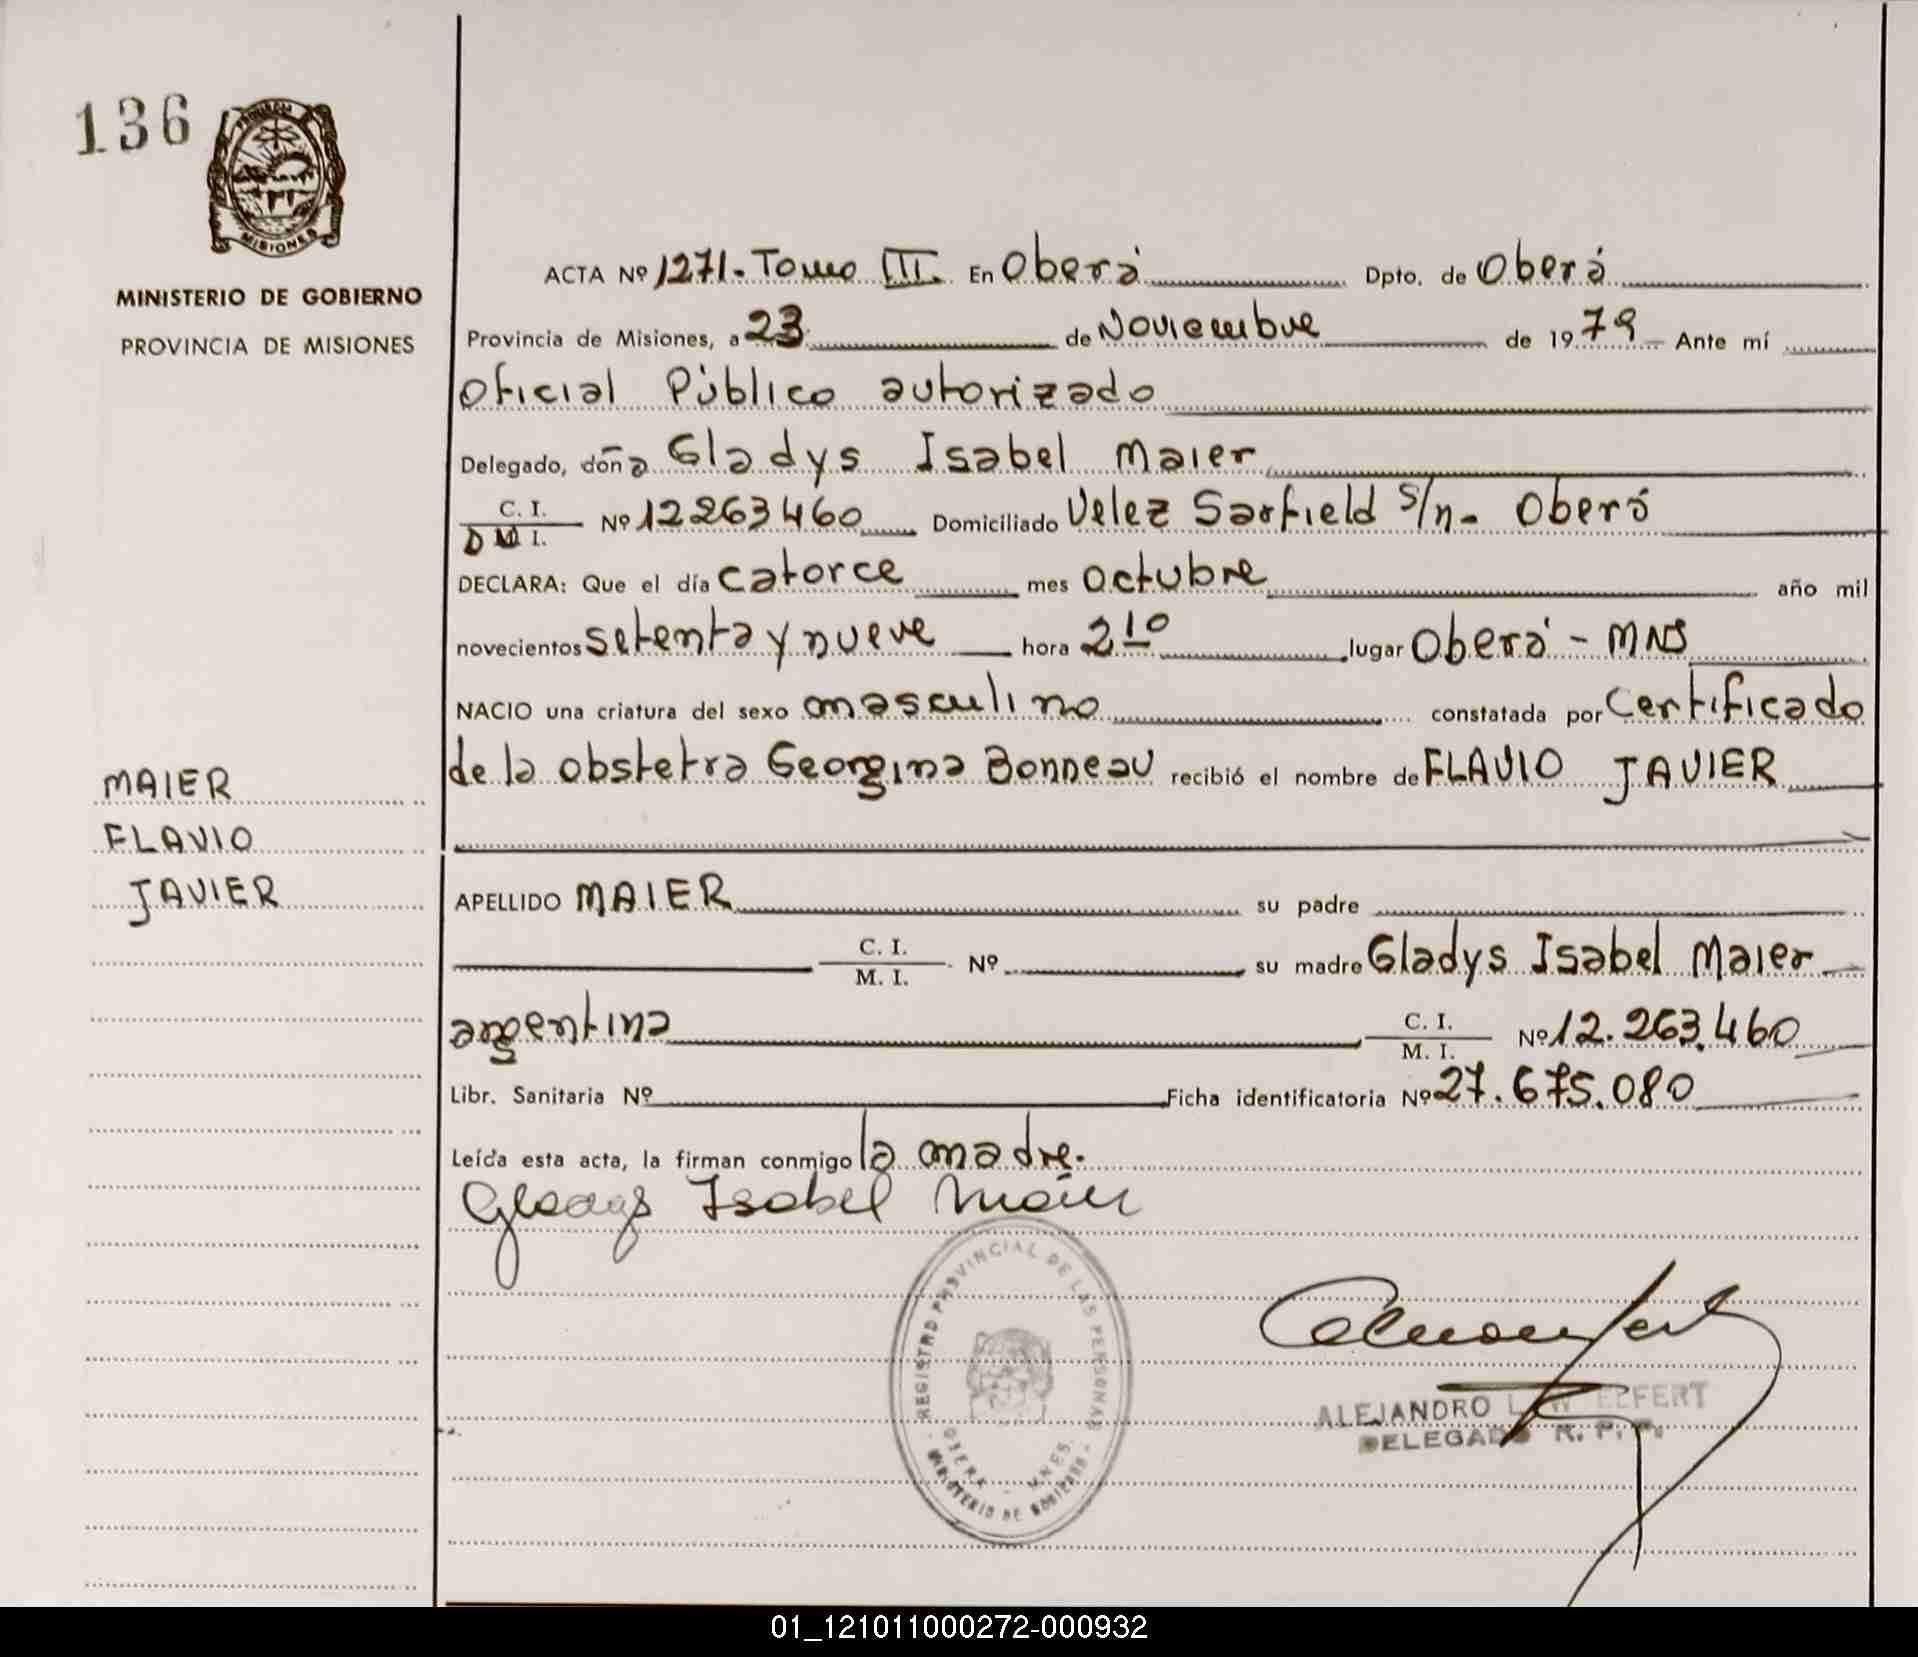 136
PROVINCIA
MISIONES
MINISTERIO DE GOBIERNO
PROVINCIA DE MISIONES
ACTA Nº 1271. Tomo III. En Oberá Dpto. de Oberá
Provincia de Misiones, a 23 de Noviembre de 1979 Ante mí
Oficial Público autorizado
Delegado, doña Gladys Isabel Maier
C. I.
D M I. Nº 12263460 Domiciliado Velez Sarfield s/n. Oberá
DECLARA: Que el día catorce mes octubre año mil
novecientos setenta y nueve hora 2 10 lugar Oberá - MNS
NACIO una criatura del sexo masculino constatada por Certificado
de la obstetra Georgina Bonneau recibió el nombre de FLAVIO JAVIER
MAIER
FLAVIO
JAVIER
APELLIDO MAIER su padre
C. I.
M. I. Nº su madre Gladys Isabel Maier
argentina C. I.
M. I. Nº 12.263.460
Libr. Sanitaria Nº Ficha identificatoria Nº 27.675.080
Leída esta acta, la firman conmigo la madre.
Gladys Isabel Maier
REGISTRO PROVINCIAL DE LAS PERSONAS
OBERA - MNES.
MINISTERIO DE GOBIERNO
ALEJANDRO
DELEGADO R. P. P.
01_121011000272-000932